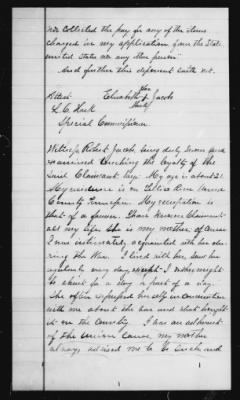 nor collected the pay for any of the items
charged in my application from the State
United States nor any other person
And further this deponent saith not.
her
Attest Elizabeth X Jacobs
mark
L. C. Houk
Special Commissioner.
Witness Robert Jacobs, being duly sworn and
examined touching the loyalty of the
said Claimant says: My age is about 21
My residence is on Tellico River Monroe
County Tennessee. My occupation is
that of a farmer. I have known Claimant
all my life she is my mother of course
I was intimately acquainted with her du
ring the War. I lived with her, saw her
regularly every day except I might
be absent for a day or part of a day.
She often expressed herself in conversation
with me about the war and what brought
it on the Country I was an adherent
of the union cause, my mother
always advised me to be such and